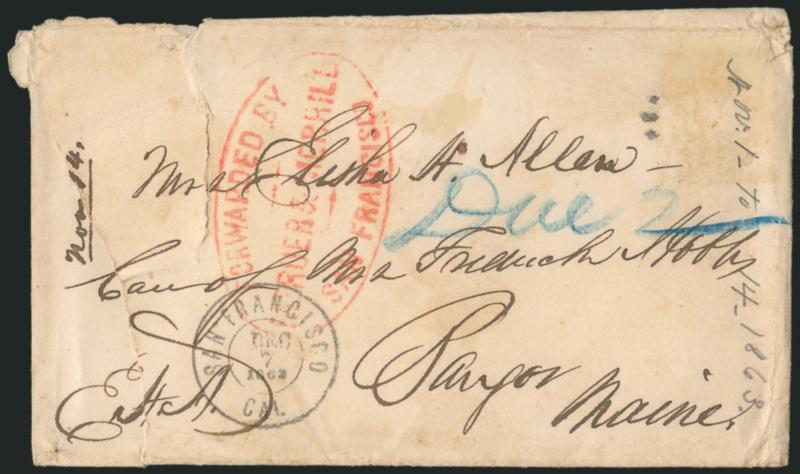 Nov. 14.
FORWARDED BY
& MERRILL
SAN FRANCISCO
Mrs Elisha H. Allen –
Due 2
Care of Mrs Fredrick Hobbs
Bangor
Maine.
E.H.A.
SAN FRANCISCO
DEC
7
1863
CAL.
Nov. 1– to 14– 1863.